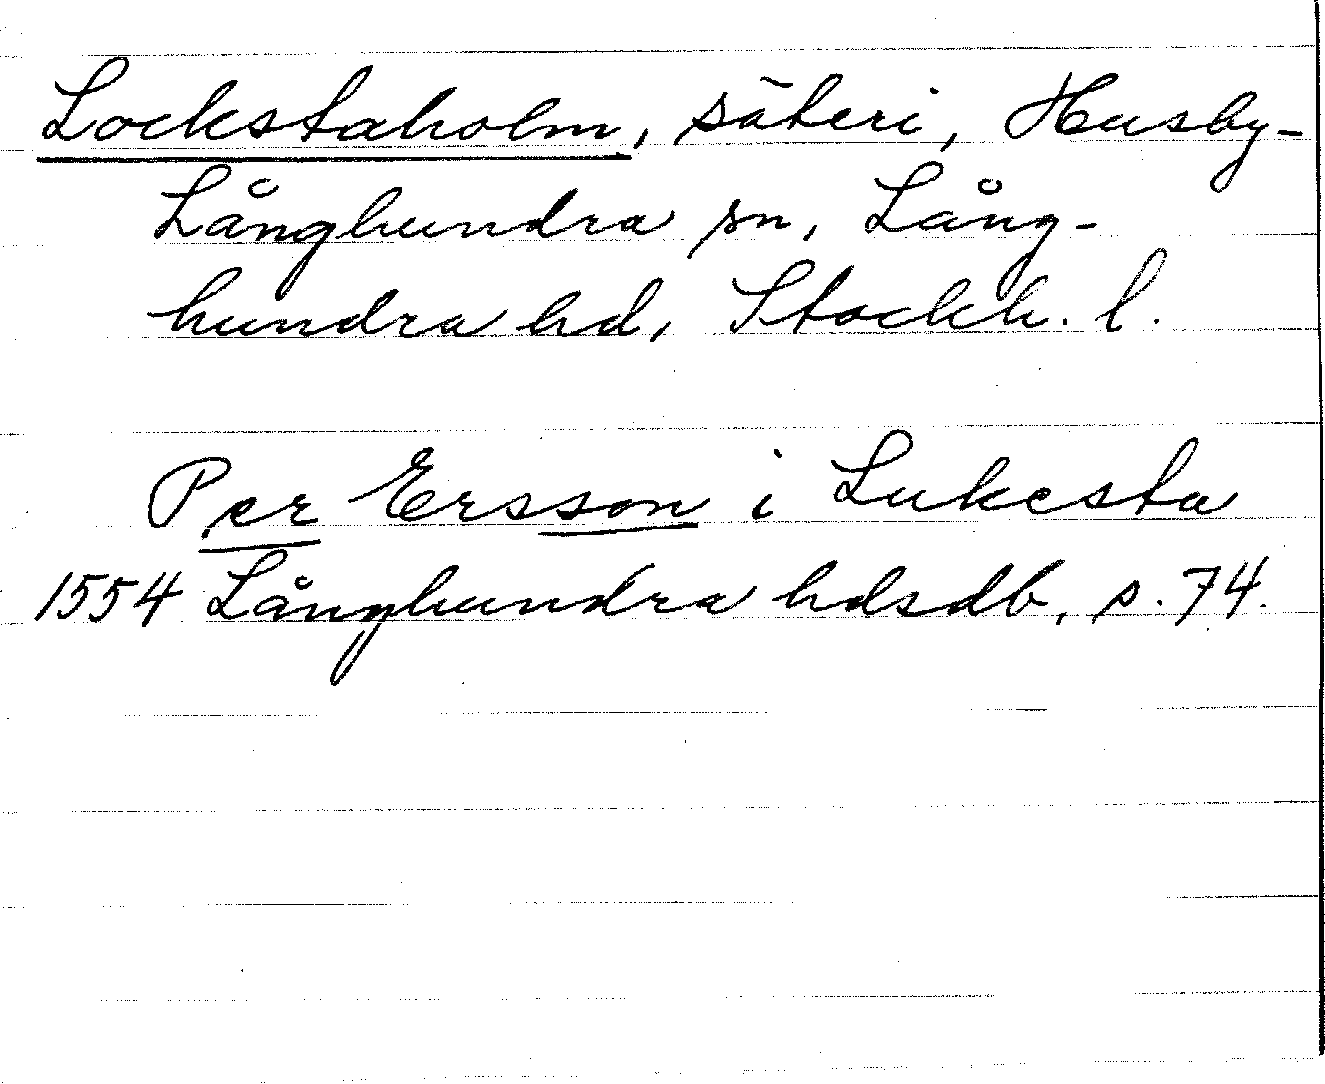 Lockstaholm, säteri, Husby-
Långhundra sn, Lång-
hundra hd, Stockh. l.
Per Ersson i Lukesta
1554 Långhundra hdsdb, s. 74.